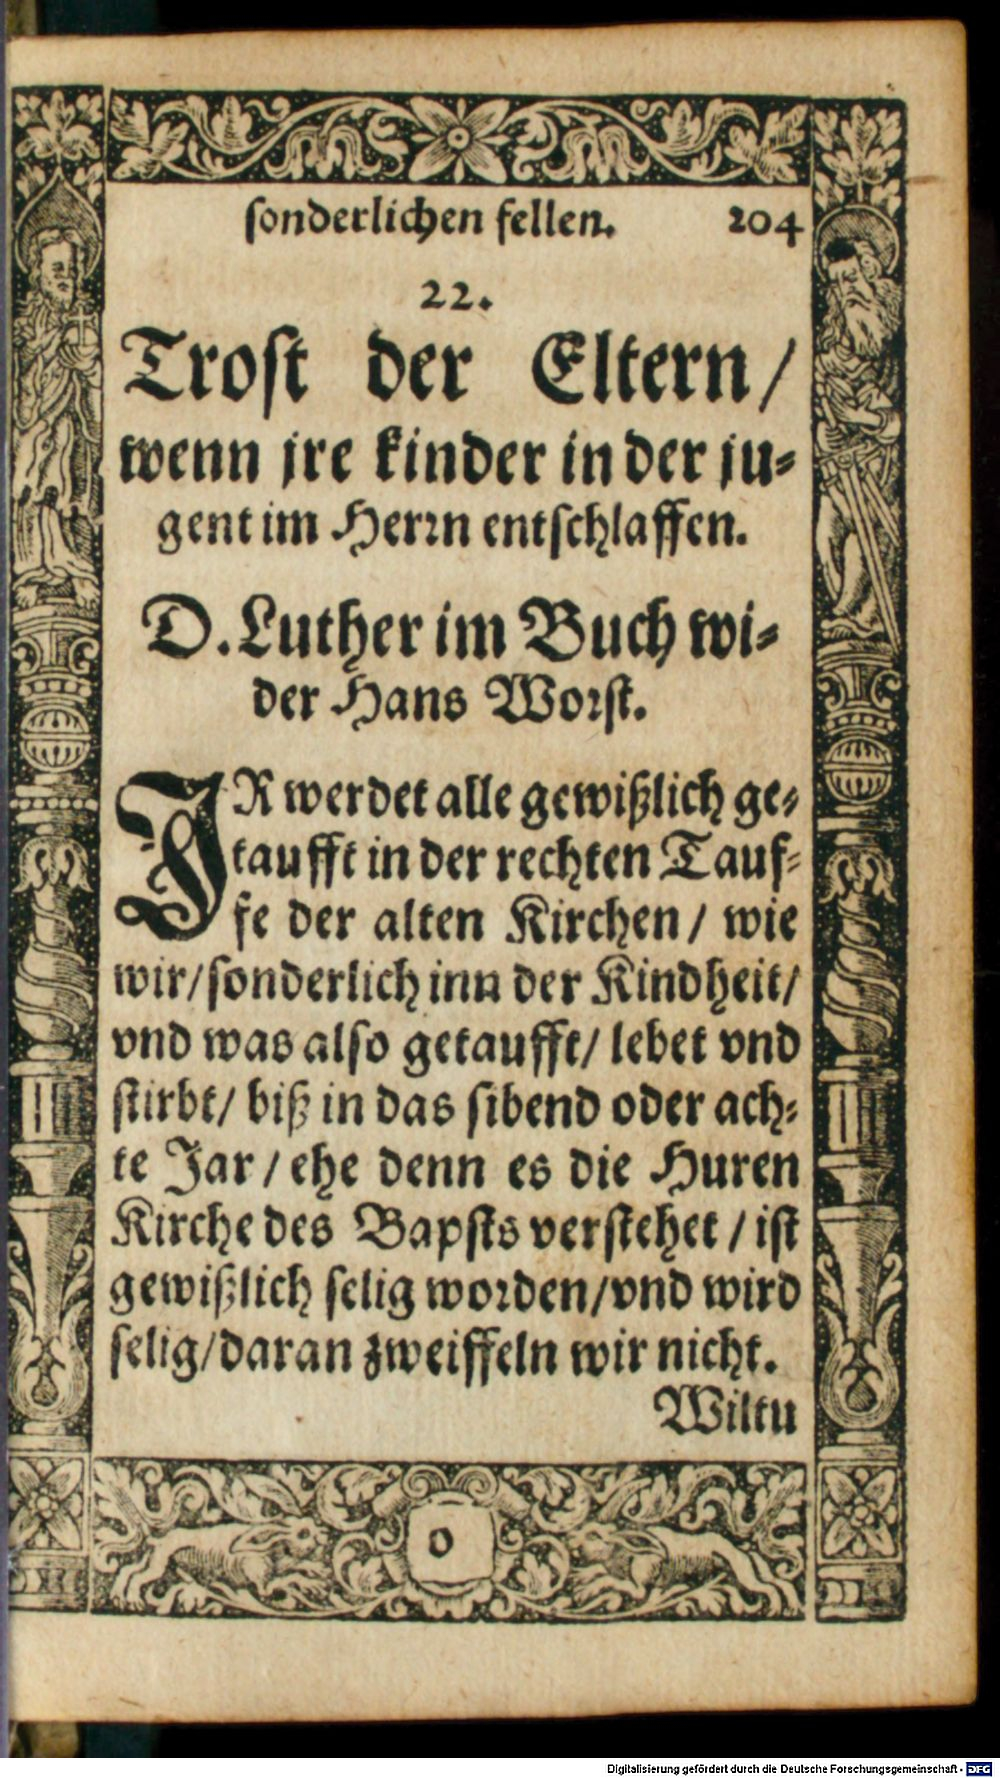 sonderlichen fellen. 204
22.
Trost der Eltern/
wenn jre kinder in der ju-
gent im Herrn entschlaffen.
D. Luther im Buch wi-
der Hans Worst.
JR werdet alle gewißlich ge-
taufft in der rechten Tauf-
fe der alten Kirchen/ wie
wir/ sonderlich inn der Kindheit/
vnd was also getaufft/ lebet vnd
stirbt/ biß in das sibend oder ach-
te Jar/ ehe denn es die Huren
Kirche des Bapsts verstehet/ ist
gewißlich selig worden/ vnd wird
selig/ daran zweiffeln wir nicht.
Wiltu
o
Digitalisierung gefördert durch die Deutsche Forschungsgemeinschaft - DFG